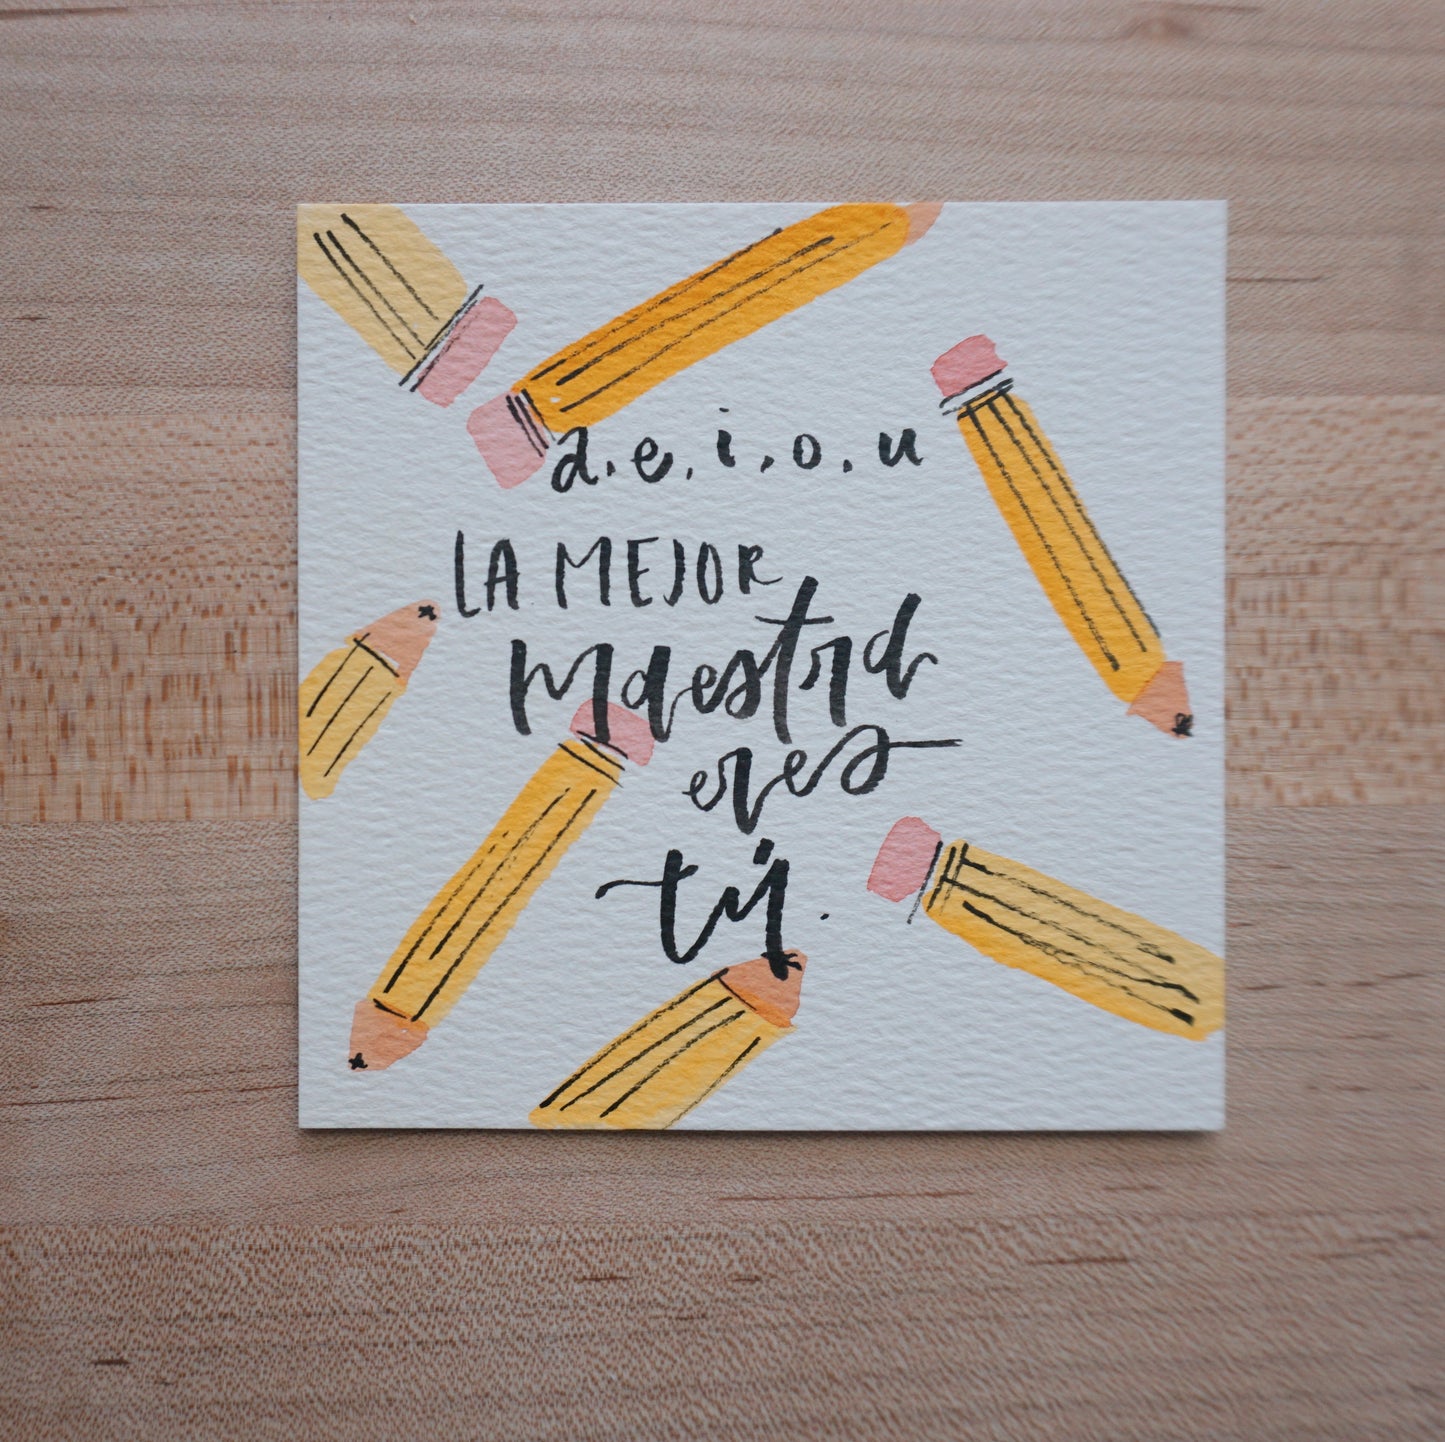 a.e.i.o.u
LA MEJOR
maestra
eres
tú.